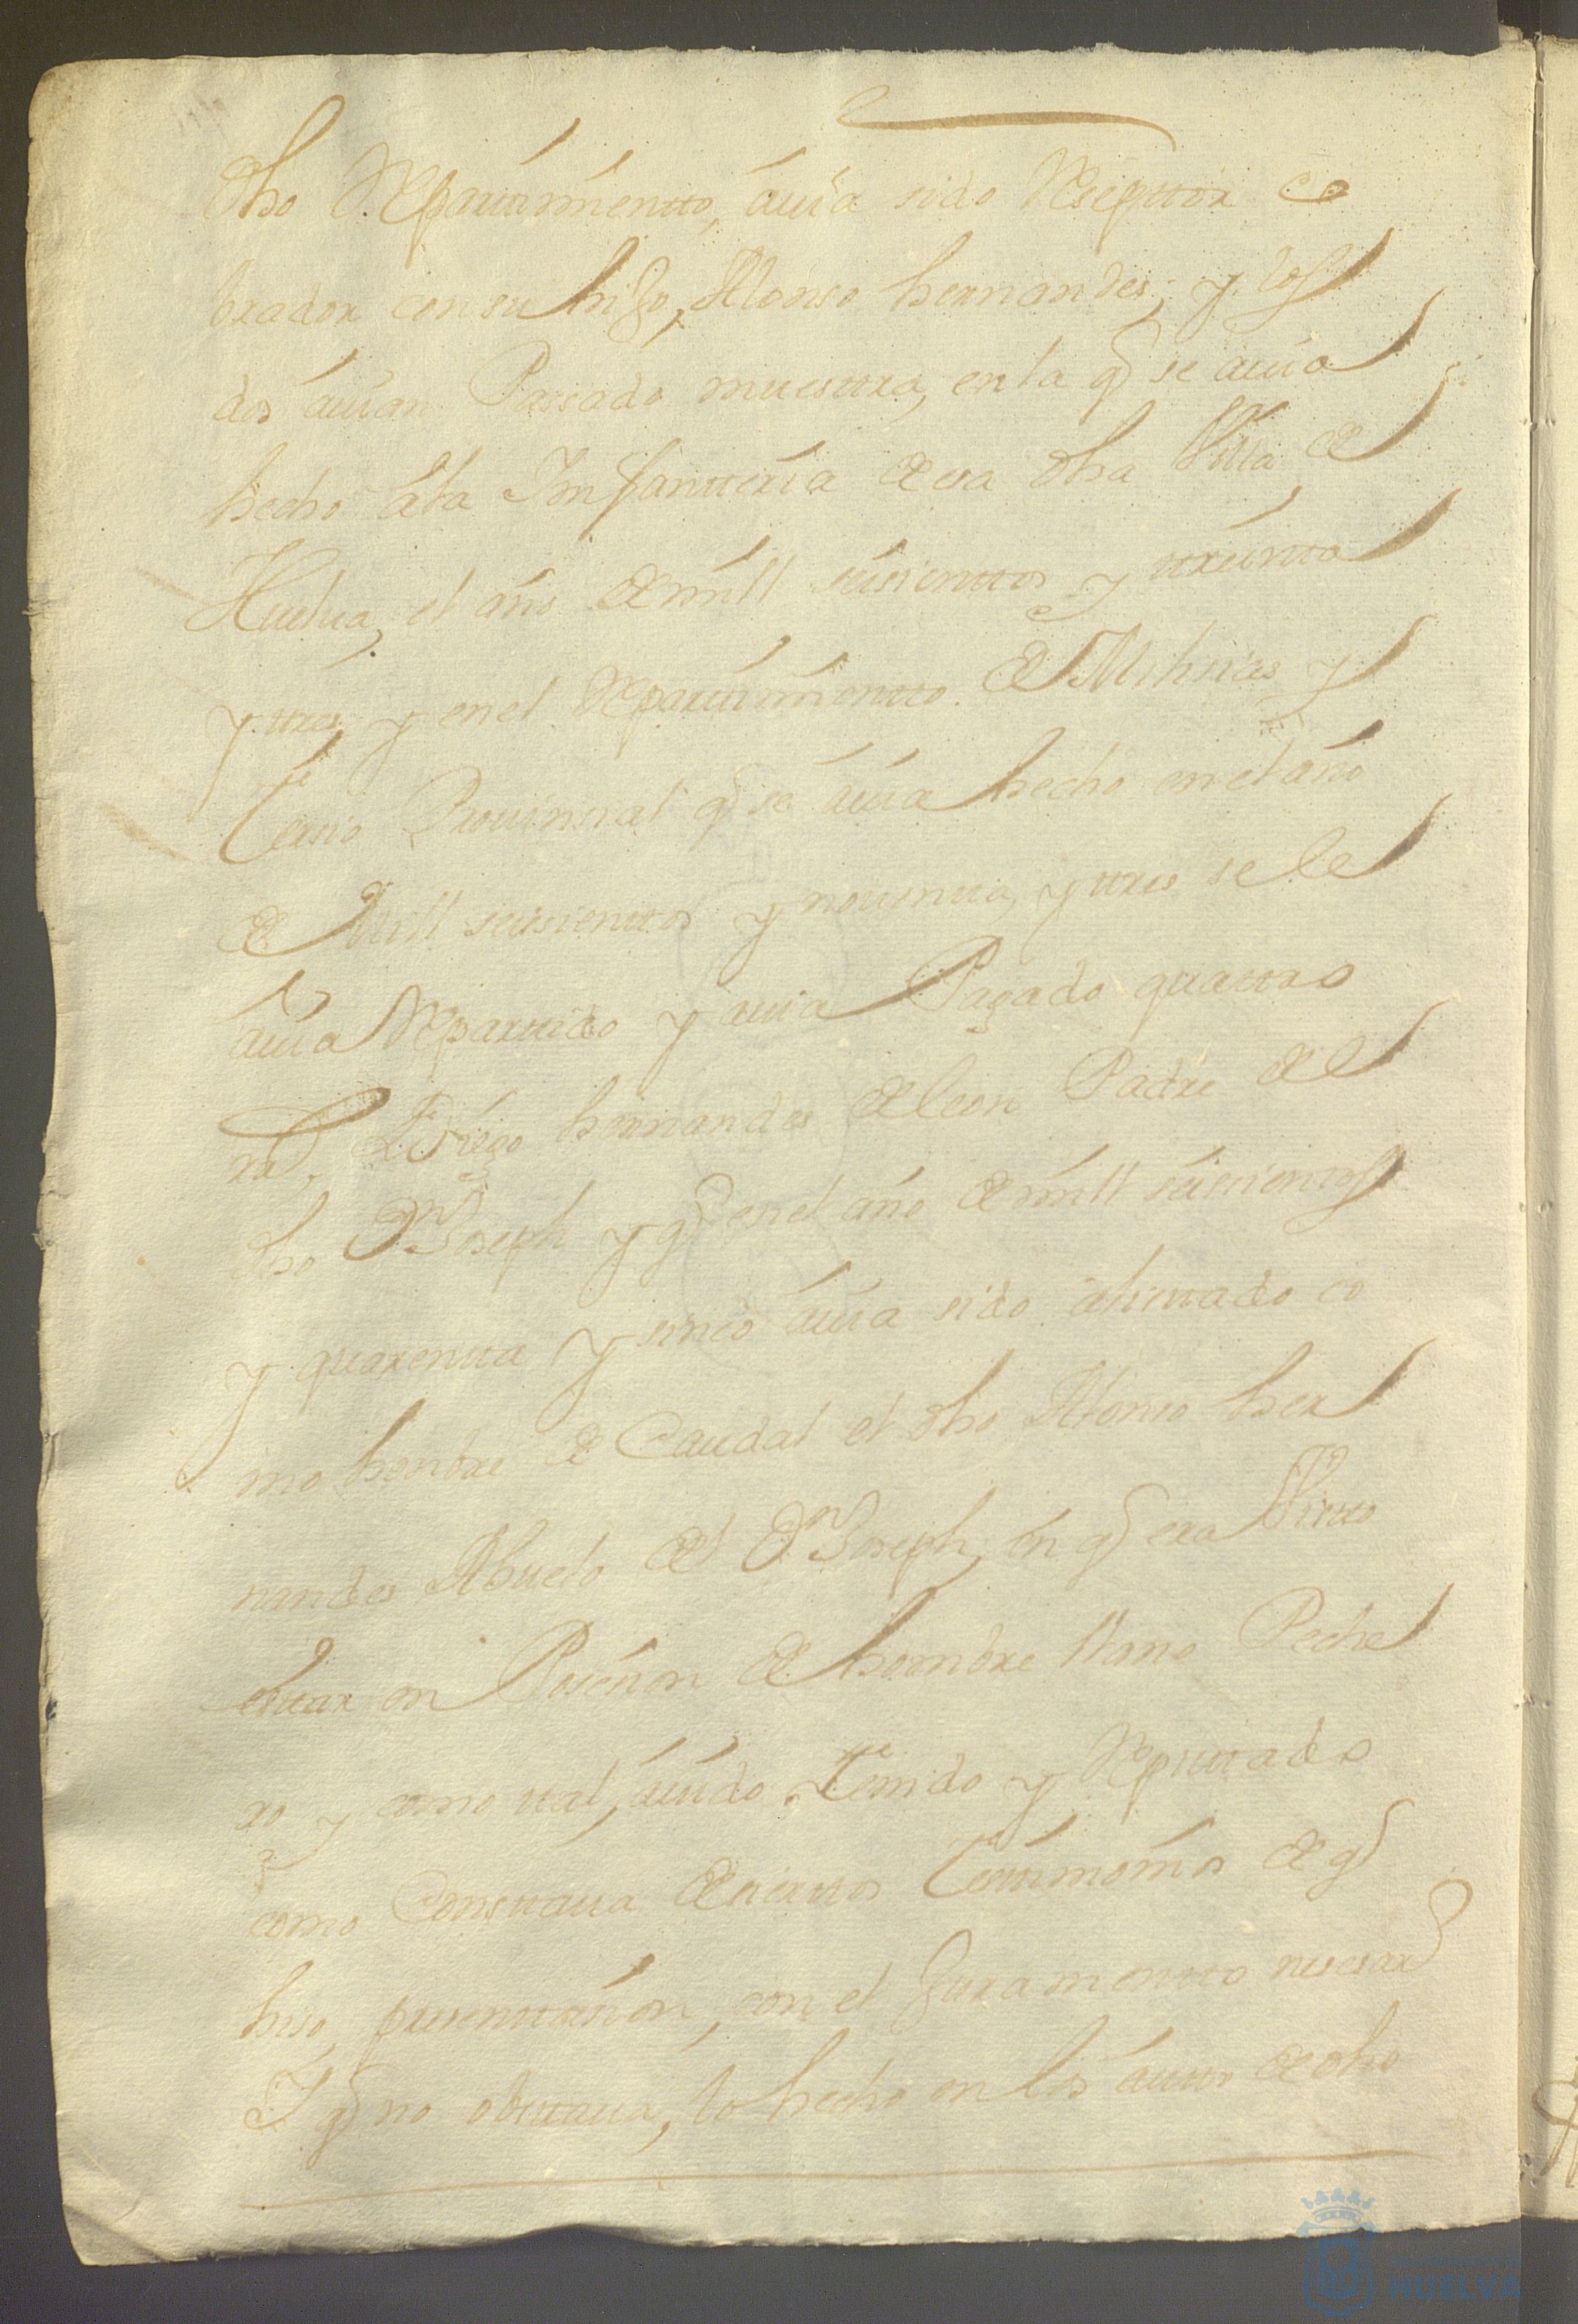 dho Repartimientto, auia sido Reseptor co
brador con su hijo, Alonso hernandes, y los
dos auian Passado muestra, en la q se auia
hecho a la Imfantteria de esa dha Villa de
Huelua, el año de mill seisienttos y treinta
y tres y en el Repartimientto de Milisias y
tersio Prouinsial q se auia hecho en el año
de Mill seisienttos y nouentta, y tres se le
auia Reparttido y auia Pagado quattro
rs. Diego hernandes de leon Padre del
dho Dn Joseph y q en el año de mill seisienttos
y quarentta y sinco auia sido alisttado co
mo hombre de Caudal el dho Alonso her
nandes Abuelo del Dn Joseph, en q era Vistto
esttar en Posesion de hombre llano Peche
ro y como tal, auido ttenido y Reputtado
como Consttaua de sierttos testtimonios de q
hiso presenttasion, con el Juramentto nesesario
Y q no obsttaua, lo hecho en los auttos de dho
HUELVA